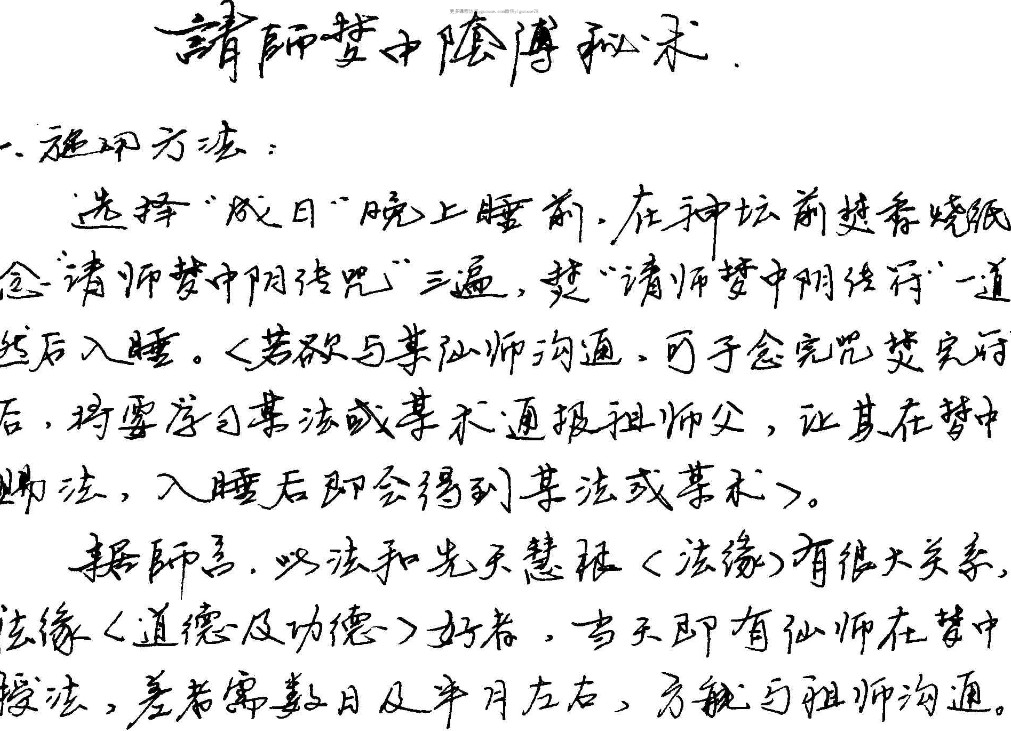 請師梦中陰傳秘术.
一.施用方法:
选择“成日“晚上睡前.在神坛前焚香烧纸
念“请师梦中阴传咒”三遍,焚“请师梦中阴传符“一道
然后入睡。<若欲与某仙师沟通.可于念完咒焚完符
后.将要学习某法或某术通报祖师父,让其在梦中
赐法,入睡后即会得到某法或某术>。
据師言.此法和先天慧根<法缘>有很大关系,
法缘<道德及功德>好者,当天即有仙师在梦中
授法,差者需数日及半月左右,方能与祖师沟通。